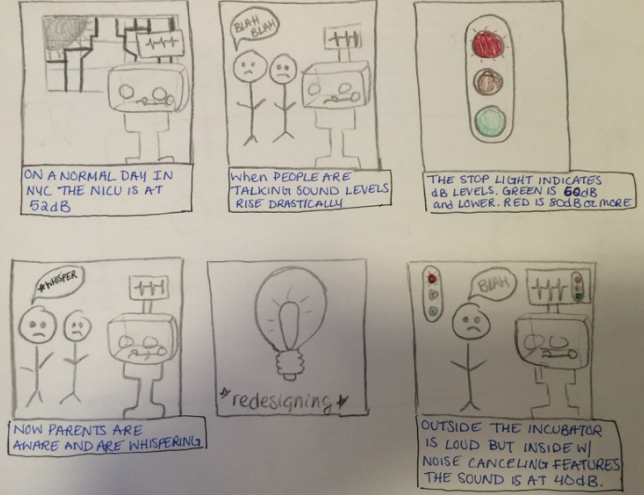 ON A NORMAL DAY IN
NYC THE NICU IS AT
52dB
BLAH
BLAH
When PEOPLE ARE
TALKING SOUND LEVELS
RISE DRASTICALLY
THE STOP LIGHT INDICATES
dB LEVELS. GREEN IS 60dB
and LOWER. RED IS 80dB or MORE
*WHISPER
NOW PARENTS ARE
AWARE AND ARE WHISPERING
*redesigning*
BLAH
OUTSIDE THE INCUBATOR
IS LOUD BUT INSIDE W/
NOISE CANCELING FEATURES
THE SOUND IS AT 40dB.